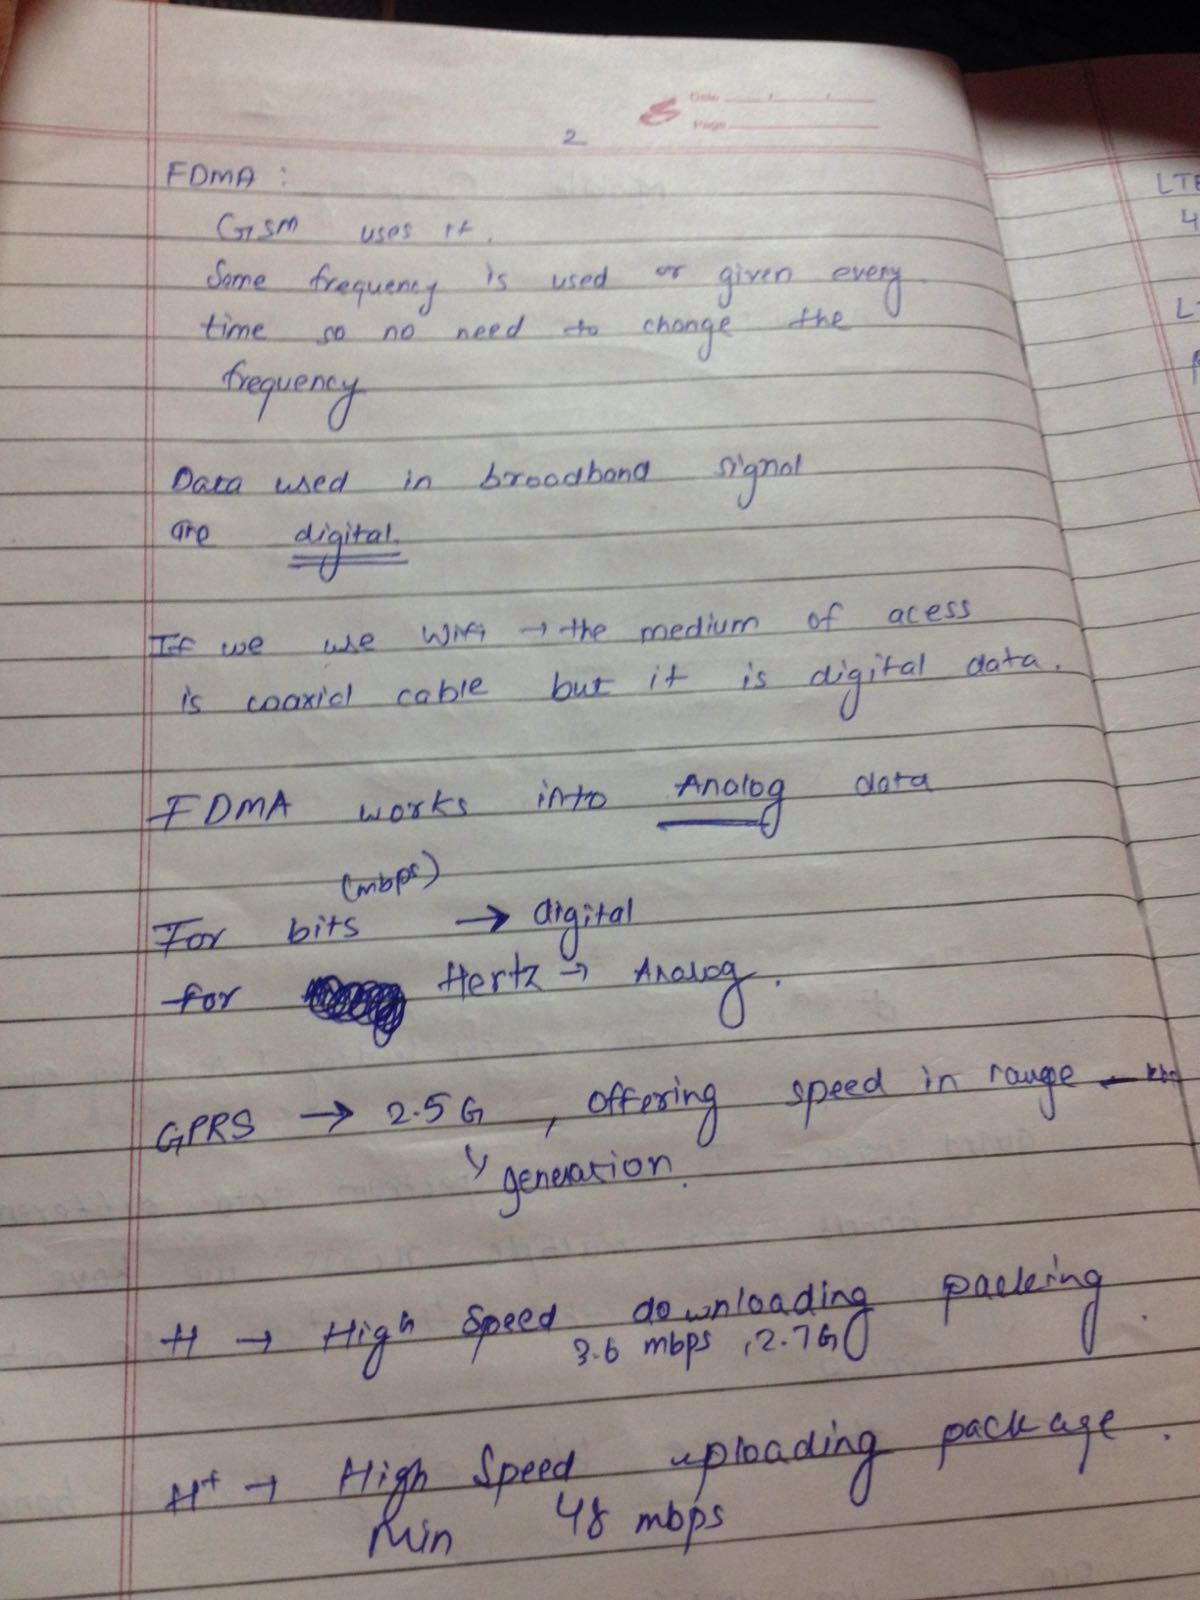 Date
Page
2
FDMA :
GSM uses it.
Same frequency is used or given every
time so no need to change the
frequency
Data used in broadband signal
are digital.
If we use Wifi → the medium of acess
is coaxial cable but it is digital data.
FDMA works into Analog data
(mbps)
For bits → digital
for Hertz → Analog.
GPRS → 2.5 G , offering speed in range –
generation.
H → High Speed downloading packing.
3.6 mbps , 2.7G
H+ → High Speed uploading package.
Min 48 mbps
LTE
4
L